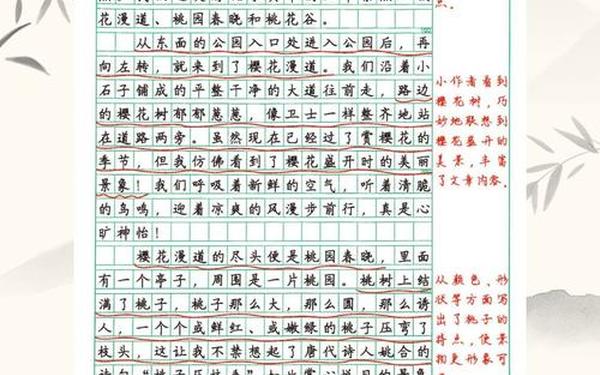 花漫道、桃园春晓和桃花谷。
从东面的公园入口处进入公园后，再
向左转，就来到了樱花漫道。我们沿着小
石子铺成的平整干净的大道往前走，路边
的樱花树郁郁葱葱，像卫士一样整齐地站
在道路两旁。虽然现在已经过了赏樱花的
季节，但我仿佛看到了樱花盛开时的美丽
景象！我们呼吸着新鲜的空气，听着清脆
的鸟鸣，迎着凉爽的风漫步前行，真是心
旷神怡！
樱花漫道的尽头便是桃园春晓，里面
有一个亭子，周围是一片桃园。桃树上结
满了桃子，桃子那么大，那么圆，那么诱
人，一个个或鲜红、或嫩绿的桃子压弯了
枝头，这让我不禁想起了唐代诗人姚合的
点。
小作者看到
樱花树，巧
妙地联想到
樱花盛开的
美景，丰富
了文章内容。
从颜色、形
状等方面写
出了桃子的
特点，使景
物更形象可
100